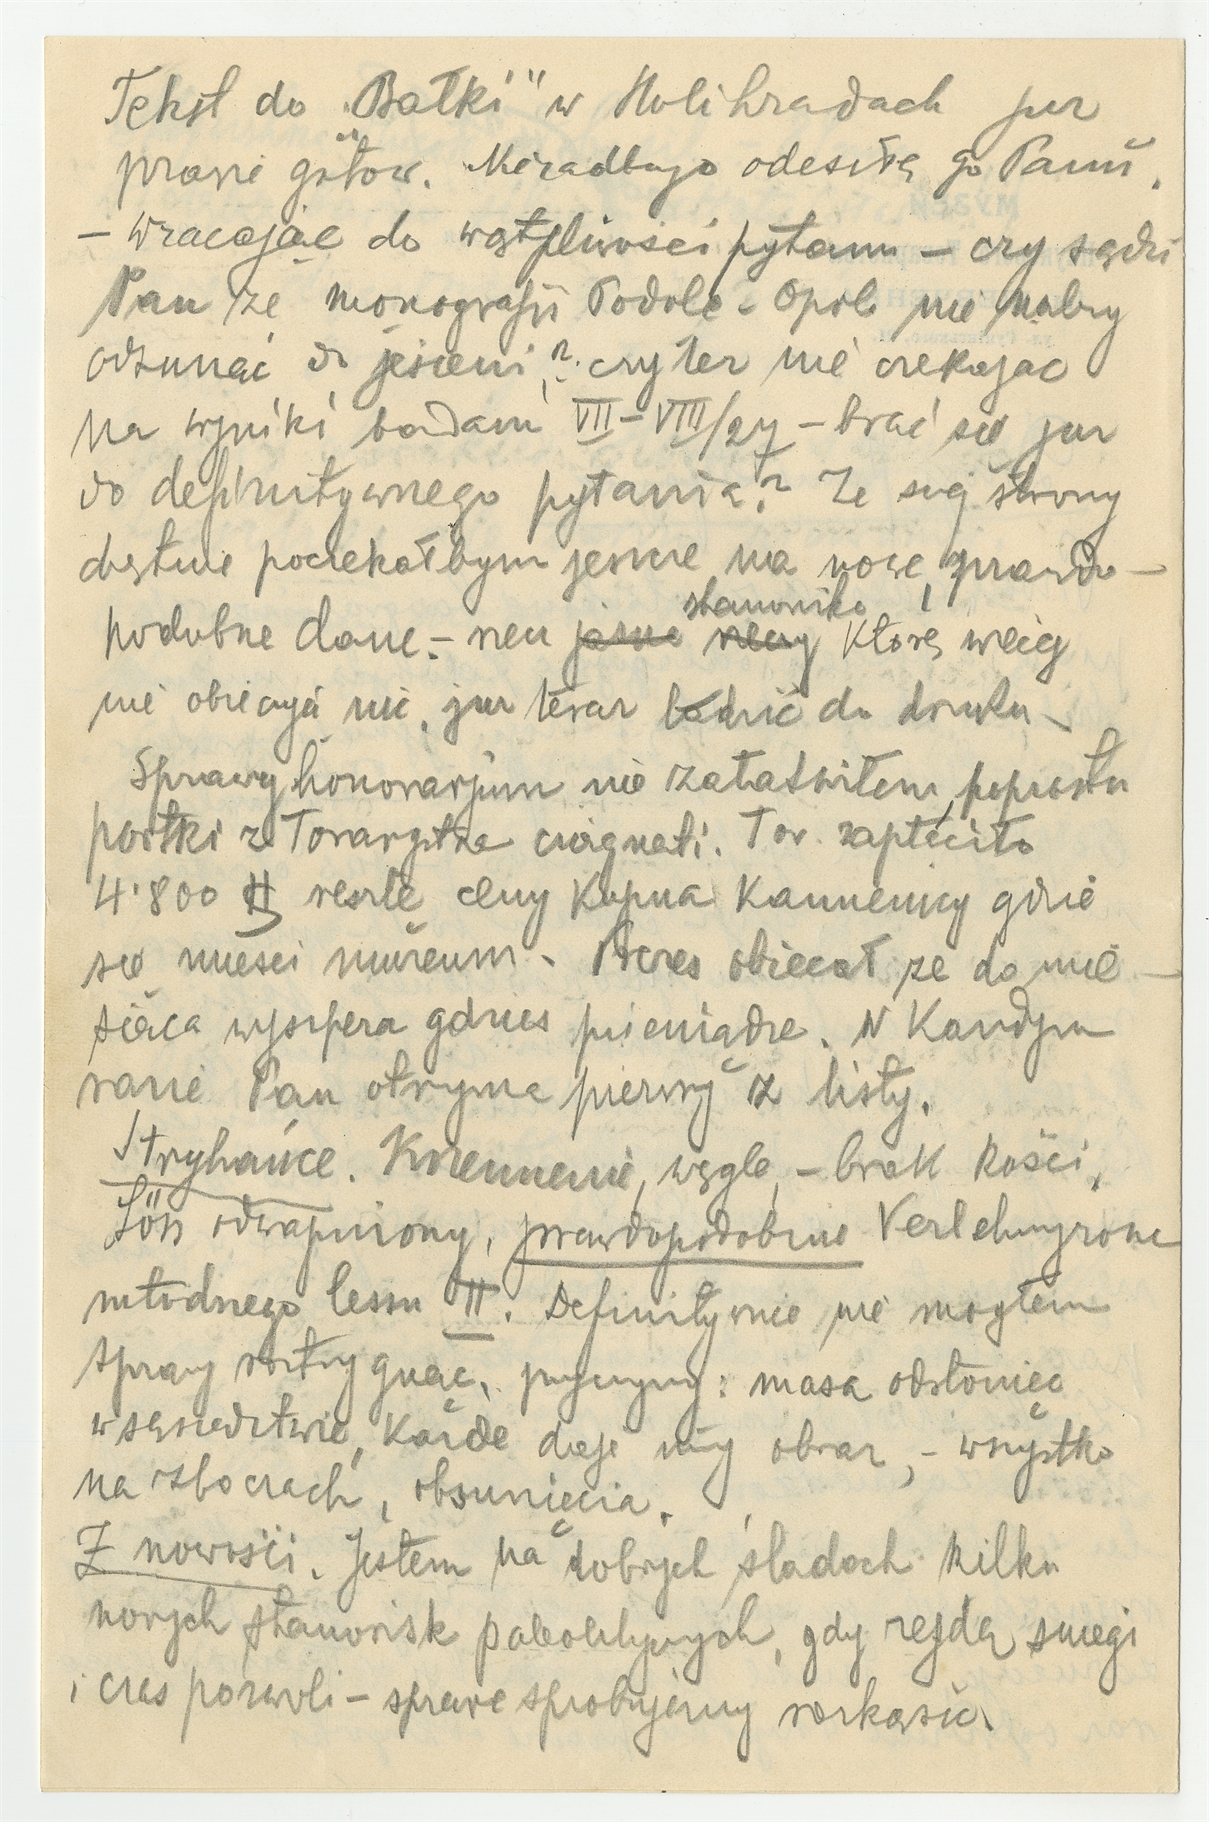 Tekst do „Bałki" w Holihradach już
prawie gotow. Niezadługo odeszlę go Panu.
– Wracając do wątpliwości pytam – czy sądzi
Pan że monografji Podole - Opole nie należy
odsunąć do jesieni?. czy też nie czekając
na wyniki badań VII–VIII/27 – brać się już
do definitywnego pytania? Ze swej strony
chętnie poczekałbym jeszcze na nowe, prawdo–
podobne dane. –
stanowiska
które wciąż
nie obiecują nic, już teraz do druku –
Sprawy honorarjum nie załatwiłem, poprostu
portki z Towarzystwa ściągnęli. Tow. zapłaciło
4·800 resztę ceny kupna kamienicy gdzie
się mieści muzeum. Prezes obiecał że do mie–
siąca wyszpera gdzieś pieniądze. W każdym
razie Pan otrzyma pierwszy z listy.
Stryhańce. Krzemienie, węgle, – brak kości,
Löss odwapniony, prawdopodobnie Verlehmgszone
młodszego lessu II. Definitywnie nie mogłem
sprawy rozstrzygnąć, przyczyny: masa odsłonięć
w sąsiedztwie, każde daje inny obraz, – wszystko
na zboczach, obsunięcia.
Z nowości. Jestem na dobrych śladach kilku
nowych stanowisk paleolitycznych, gdy zejdą śniegi
i czas pozwoli – sprawę spróbujemy rozkąsić.